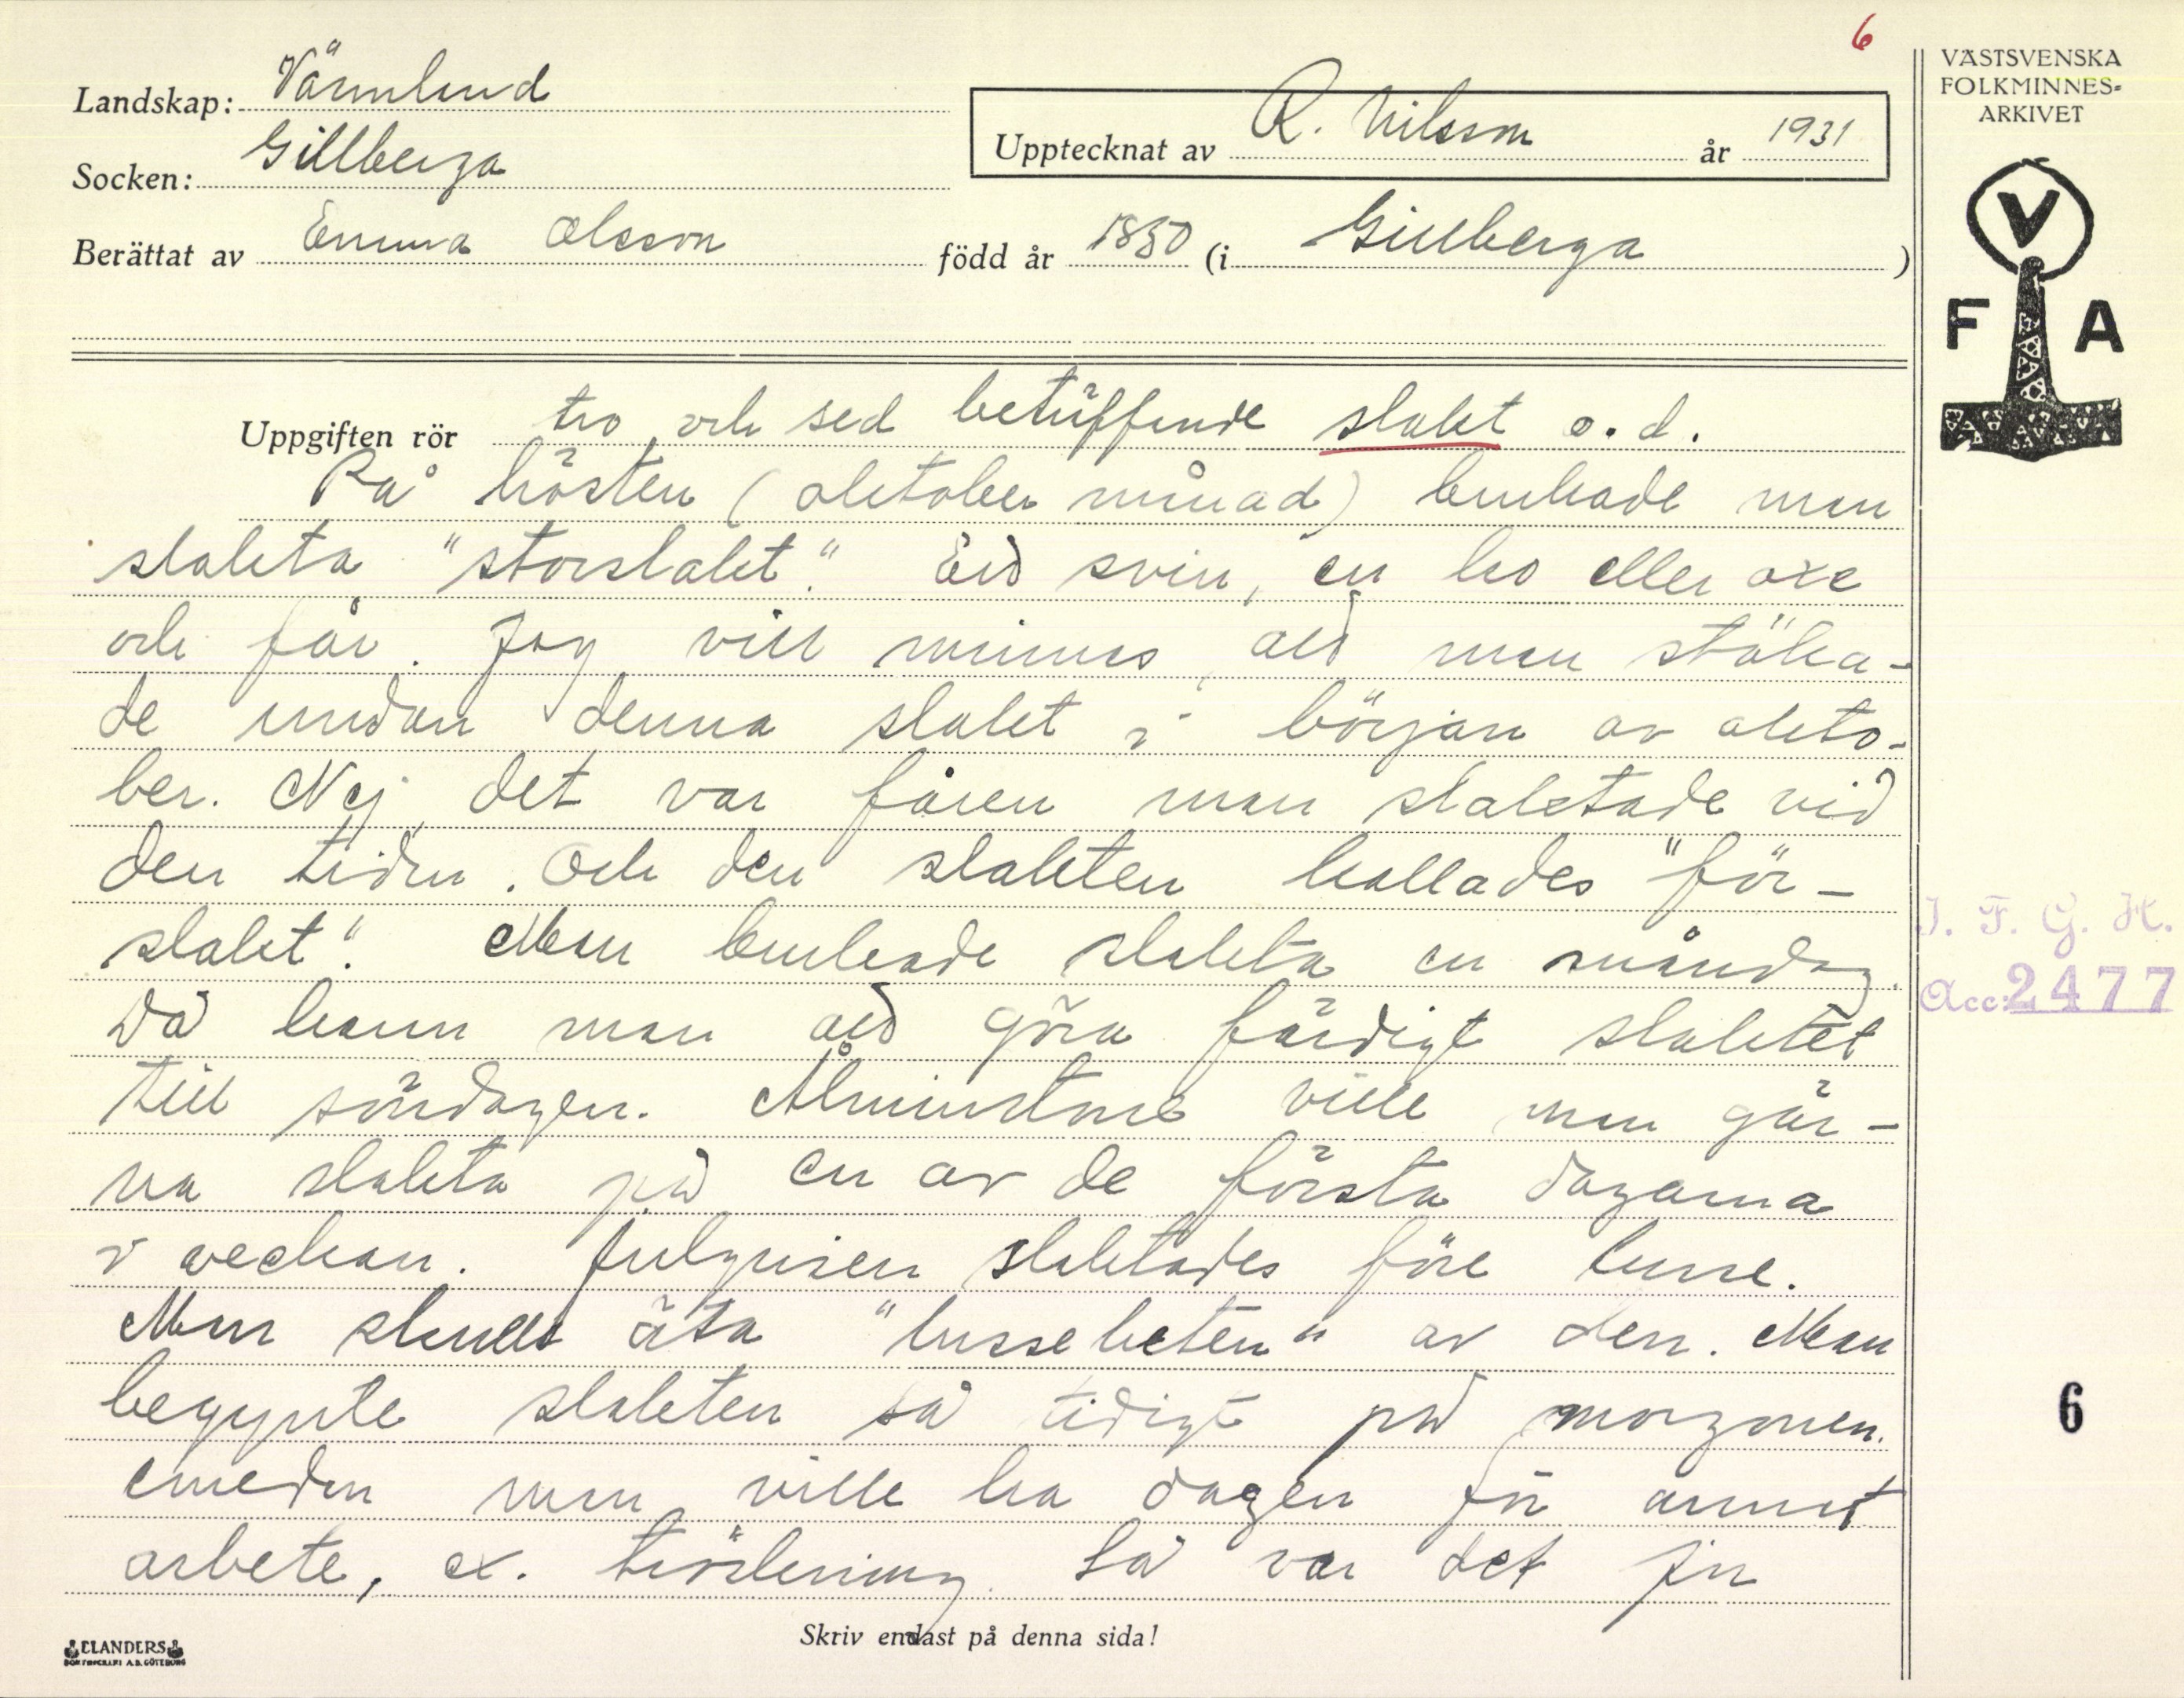 6
Landskap: Värmland
Socken: Gillberga
Berättat av Emma Olsson född år 1850 (i Gillberga)
Upptecknat av R. Nilsson år 1931
VÄSTSVENSKA
FOLKMINNES-
ARKIVET
V
F A
Uppgiften rör tro och sed beträffande slakt o. d.
På hösten (oktober månad) brukade man
slakta "storslakt". Ett svin, en ko eller oxe
och får. Jag vill minnas, att man stöka-
de undan denna slakt i början av okto-
ber. Nej, det var fåren man slaktade vid
den tiden. Och den slakten kallades "för-
slakt". Man brukade slakta en måndag.
Då hann man att göra färdigt slaktet
till söndagen. Åtminstone ville man gär-
na slakta på en av de första dagarna
i veckan. Julgrisen slaktades före lusse.
Man skulle äta "lussebeten" av den. Man
begynte slakten så tidigt på morgonen.
emedan man ville ha dagen för annat
arbete, ex. tröskning. Så var det för
I. F. G. H.
Acc: 2477
6
Skriv endast på denna sida!
ELANDERS
BOKTRYCKERI A.B. GÖTEBORG